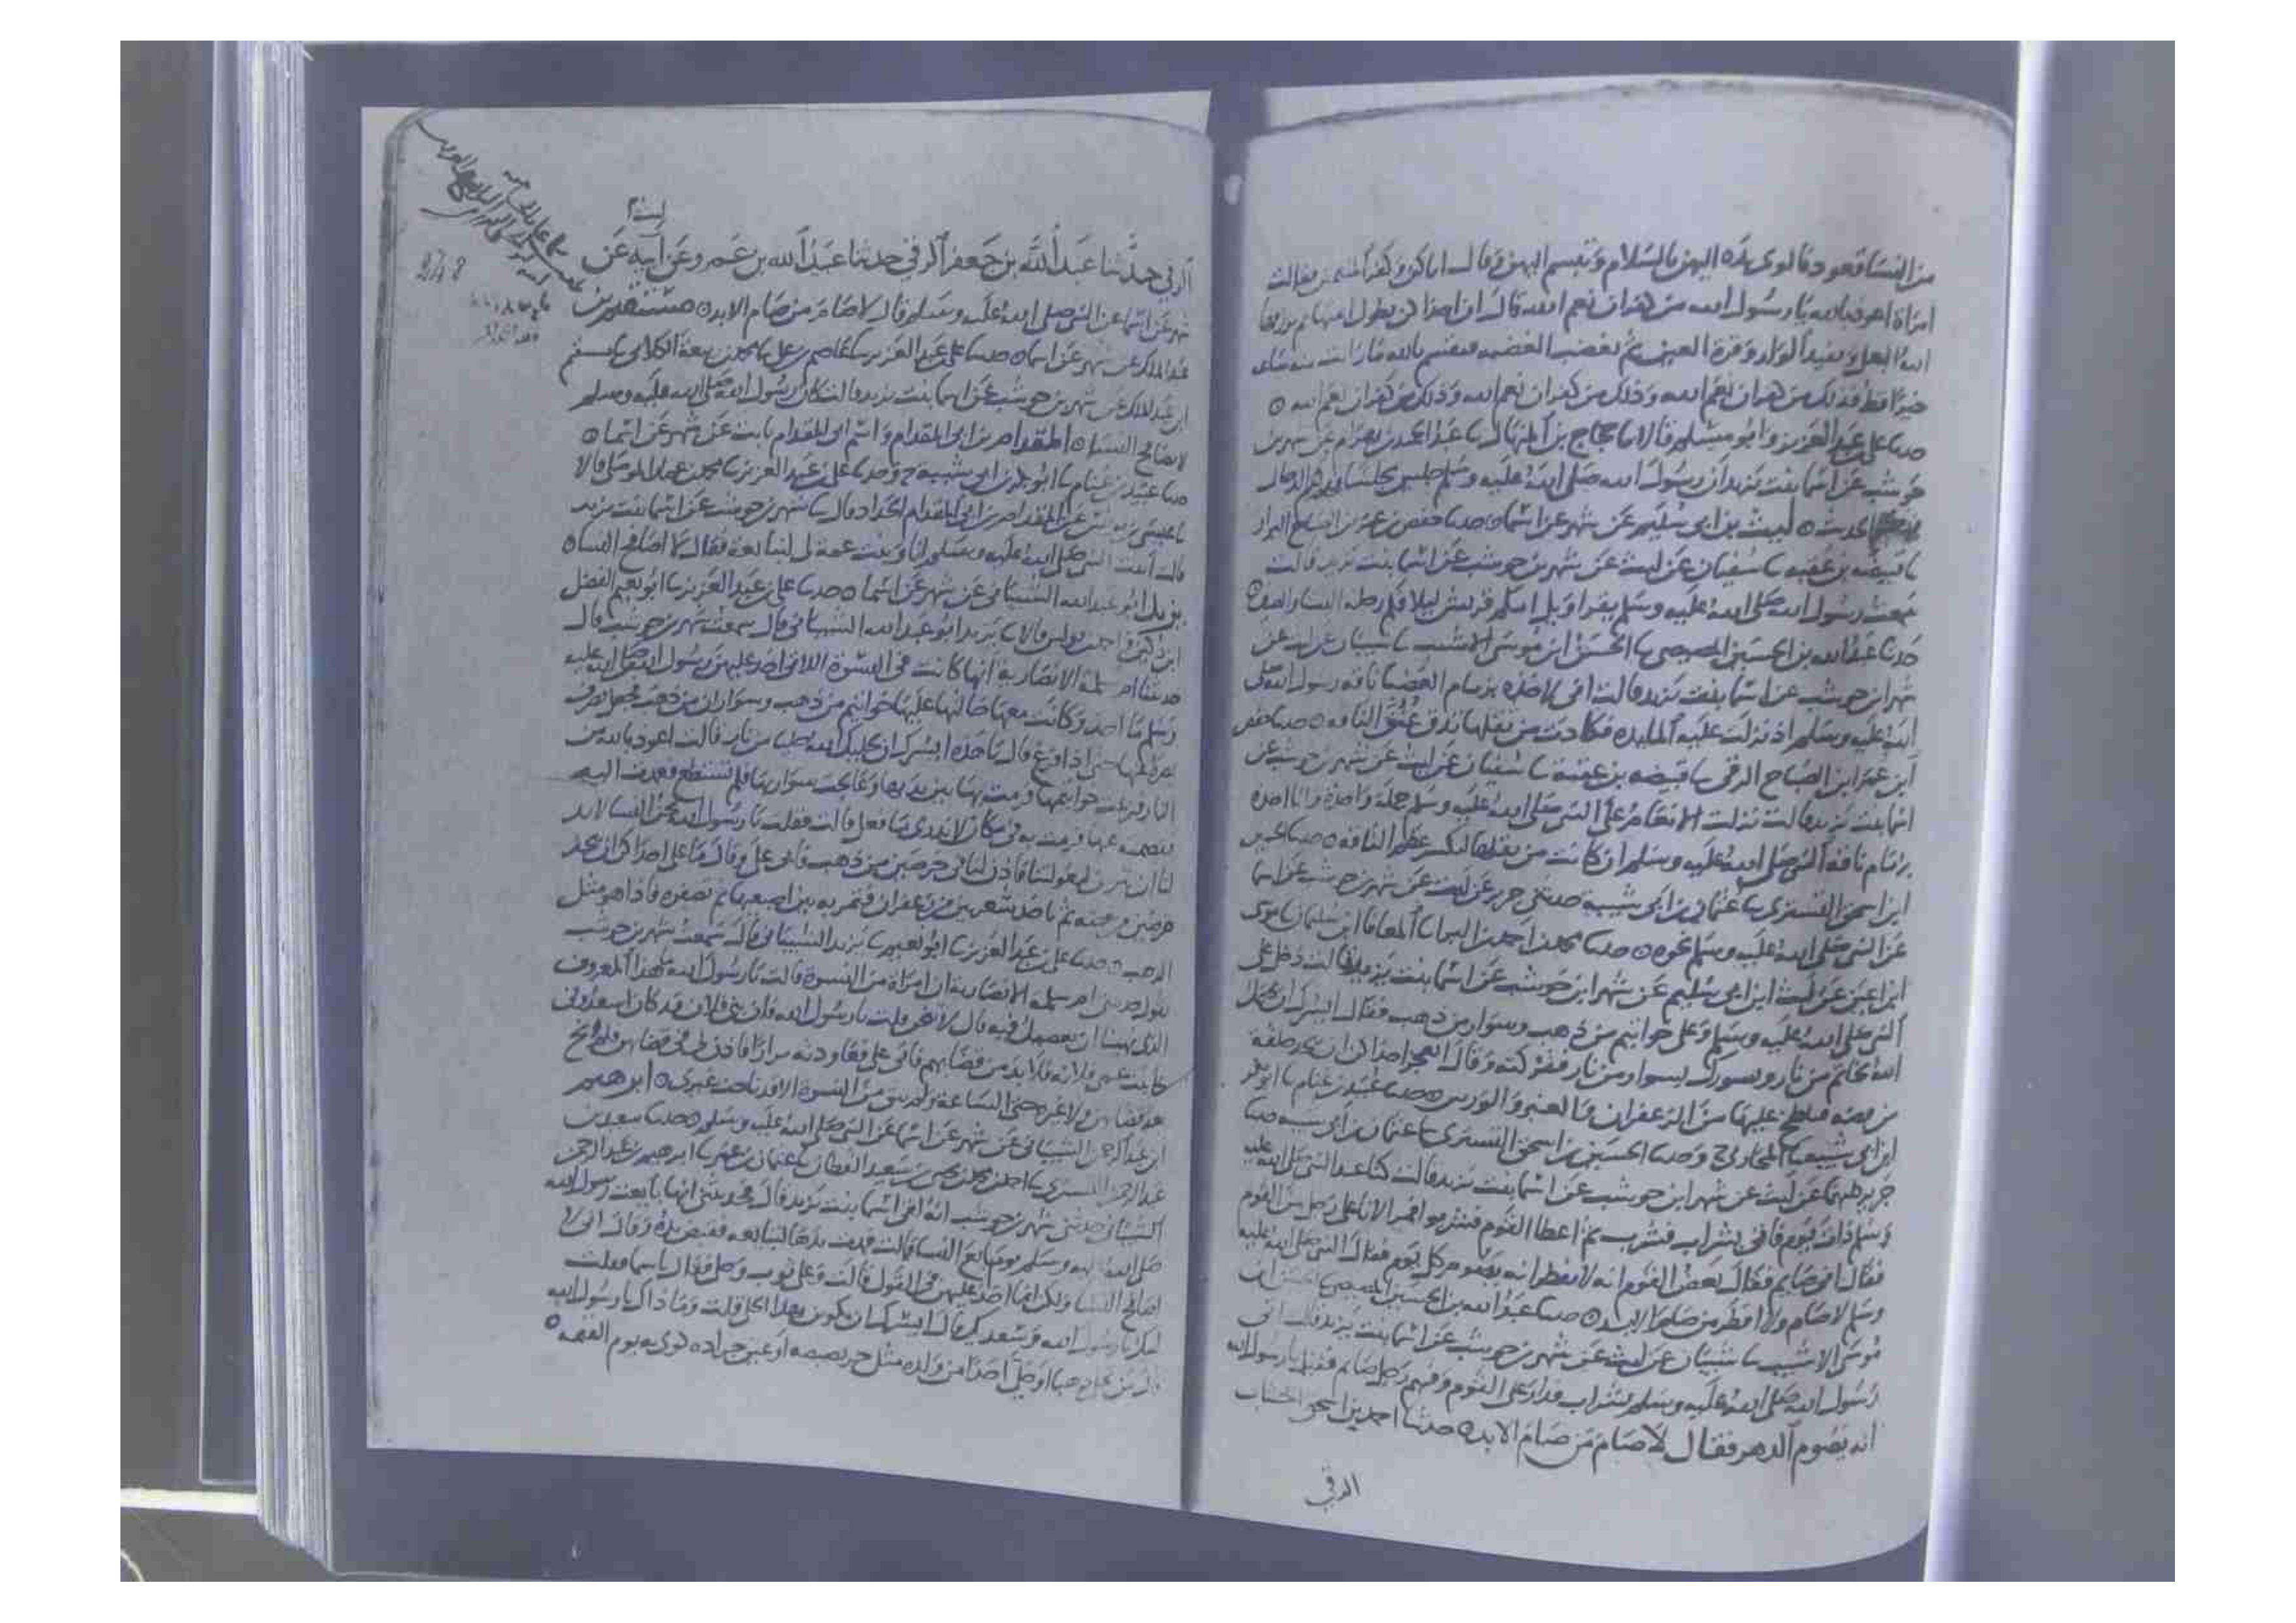 من النسا قعود فالوى بيده اليهن بالسلام وتبسم اليهن وقال اياكن وكفر المنعمين فقالت
امراة اعوذ بالله يا رسول الله من كفران نعم الله قال ان احداكن يطول ايمتها ثم يزوجها
الله البعل ويفيد الولد وقرة العين ثم تغضب الغضبه فتقسم بالله ما رات منه ساعه
خيرا قط فذلك من كفران نعم الله وذلك من كفران نعم الله وذلك من كفران نعم الله
حدثنا علي بن عبد العزيز وابو مسلم قالا ثنا حجاج بن المنهال ثنا عبد الحميد بن بهرام عن شهر بن
حوشب عن اسما بنت يزيد ان رسول الله صلى الله عليه وسلم جلس مجلسا فذكر الدجال
الحديث ليث بن ابي سليم عن شهر عن اسما حدثنا حفص بن عمر بن الصباح
ثنا قبيصه بن عقبه ثنا سفيان عن ليث عن شهر بن حوشب عن اسما بنت يزيد قالت
سمعت رسول الله صلى الله عليه وسلم يقرا ويل امكم قريش ليلاف رحلة الشتا والصيف
حدثنا عبد الله بن الحسين المصيصي ثنا الحسن ابن موسى الاشيب ثنا شيبان عن ليث عن
شهر ابن حوشب عن اسما بنت يزيد قالت اني لاخذه بزمام العضبا ناقه رسول الله صلى
الله عليه وسلم اذ نزلت عليه المايده فكادت من ثقلها تدق عنق الناقه حدثنا حفص
ابن عمر ابن الصباح الرقي ثنا قبيصه بن عقبه ثنا سفيان عن ليث عن شهر بن حوشب عن
اسما بنت يزيد قالت نزلت الانعام على النبي صلى الله عليه وسلم جملة واحدة وانا اخذه
بزمام ناقة النبي صلى الله عليه وسلم ان كادت من ثقلها لتكسر عظم الناقه حدثنا الحسين
ابن اسحق التستري ثنا عثمان بن ابي شيبة حدثني جرير عن ليث عن شهر بن حوشب عن اسما
عن النبي صلى الله عليه وسلم نحوه حدثنا محمد بن احمد بن البراء ثنا المعافا ابن سليمان ثنا موسى
ابن اعين عن ليث ابن ابي سليم عن شهر ابن حوشب عن اسما بنت يزيد قالت دخل علي
النبي صلى الله عليه وسلم وعلي خواتيم من ذهب وسوار من ذهب فقال ايسرك ان يحليك
الله بخاتم من نار ويسورك بسوار من نار ففزكته وقال العجز احداكن ان تتخذ حلقة
من فضه فتلطخ عليها من الزعفران والعنبر والورس حدثنا عبيد بن غنام ثنا ابو بكر
ابن ابي شيبه ثنا المحاربي ح وحدثنا الحسين بن اسحق التستري ثنا عثمان بن ابي شيبه حدثنا
جرير كلاهما عن ليث عن شهر ابن حوشب عن اسما بنت يزيد قالت كنا عند النبي صلى الله عليه
وسلم ذات يوم فاتي بشراب فشرب ثم اعطا القوم فشربوا فمر الاناء على رجل من القوم
فقال اني صايم فقال بعض القوم انه لا يفطر انه يصوم كل يوم فقال النبي صلى الله عليه
وسلم لا صام ولا افطر من صام الابد حدثنا عبد الله بن الحسين المصيصي ثنا الحسن ابن
موسى الاشيب ثنا شيبان عن ليث عن شهر بن حوشب عن اسما بنت يزيد قالت اتي
رسول الله صلى الله عليه وسلم بشراب فدار على القوم وفيهم رجل صايم فقيل يا رسول الله
انه يصوم الدهر فقال لا صام من صام الابد حدثنا احمد بن اسحق الخشاب
الرقي
248
الرقي حدثنا عبد الله بن جعفر الرقي حدثنا عبيد الله بن عمرو عن ليث عن
شهر عن اسما عن النبي صلى الله عليه وسلم قال لا صام من صام الابد مستقيم بن
عبد الملك عن شهر عن اسما حدثنا علي بن عبد العزيز ثنا عاصم بن علي ثنا محمد بن ربيعة الكلابي ثنا مستقيم
ابن عبد الملك عن شهر بن حوشب عن اسما بنت يزيد قالت كان رسول الله صلى الله عليه وسلم
لا يصافح النسا المقدام بن ابي المقدام واسم ابي المقدام ثابت عن شهر عن اسما
حدثنا عبيد بن غنام ثنا ابو بكر بن ابي شيبة ح وحدثنا علي بن عبد العزيز ثنا محمد بن عمار الموصلي قالا
ثنا عيسى بن يونس عن المقدام بن ابي المقدام الحداد قال ثنا شهر بن حوشب عن اسما بنت يزيد
قالت اتيت النبي صلى الله عليه وسلم انا وبنت عمة لي لنبايعه فقال لا اصافح النسا
يزيد ابو عبد الله الشيباني عن شهر عن اسما حدثنا علي بن عبد العزيز ثنا ابو نعيم الفضل
ابن دكين واحمد بن يونس قالا ثنا يزيد ابو عبد الله الشيباني قال سمعت شهر بن حوشب قال
حدثتنا ام سلمة الانصارية انها كانت في النسوة اللاتي اخذ عليهن رسول الله صلى الله عليه
وسلم ما اخذ وكانت معها خالتها عليها خواتيم من ذهب وسواران من ذهب
قال يا هذه ايسرك ان يحليك الله من نار قالت اعوذ بالله من
النار فنزعت خواتيمها فرمت بها بين يديها وعالجت سواريها فلم تستطع فعمدت اليه
عنها فرمت به في مكان لا ندري ما فعل قالت فقلت يا رسول الله نحن النسا لا بد
لنا ان نتزين لبعولتنا فاذن لنا في خرصين من ذهب فابى علي وقال ما على احداكن ان تتخذ
خرصين من فضه ثم تاخذ شعرين من زعفران فتمر به بين اصبعيها ثم تصفره فاذا هو مثل
الذهب حدثنا علي بن عبد العزيز ثنا ابو نعيم ثنا يزيد الشيباني قال سمعت شهر بن حوشب
يقول حدثتني ام سلمة الانصاريه ان امراة من النسوة قالت يا رسول الله ما هذا المعروف
الذي نهينا ان نعصيك فيه قال لا تنحن قلت يا رسول الله فان بني فلان قد كان اسعدوني
على عمي فلانه فلا بد من قضايهم فابى علي فعاودته مرارا فاذن لي في قضايهن فلم انح
بعد قضايهن ولا غيره حتى الساعة ولم يبق من النسوة الا قد ناحت غيري ابرهيم
ابن عبد الرحمن الشيباني عن شهر عن اسما عن النبي صلى الله عليه وسلم حدثنا سعيد بن
عبد الرحمن التستري ثنا احمد بن محمد بن يحيى بن سعيد القطان ثنا عثمان بن عمر ثنا ابرهيم بن عبد الرحمن
الشيباني حدثني شهر بن حوشب انه اتى اسما بنت يزيد قال فحدثتني انها بايعت رسول الله
صلى الله عليه وسلم يوم بايع النسا قالت فمدت يدها لتبايعه فقبض يده وقال اني لا
اصافح النسا ولكن انما اخذ عليهن في القول قالت وعلي ثوب وحلي فقال يا اسما فقلت
لبيك يا رسول الله وسعديك قال ايسرك ان يكون بهذا الحلي قلت وما ذاك يا رسول الله
قال من تحلى ذهبا او حلى احدا من ولده مثل خربصيصه او عين جراده كوي به يوم القيمه